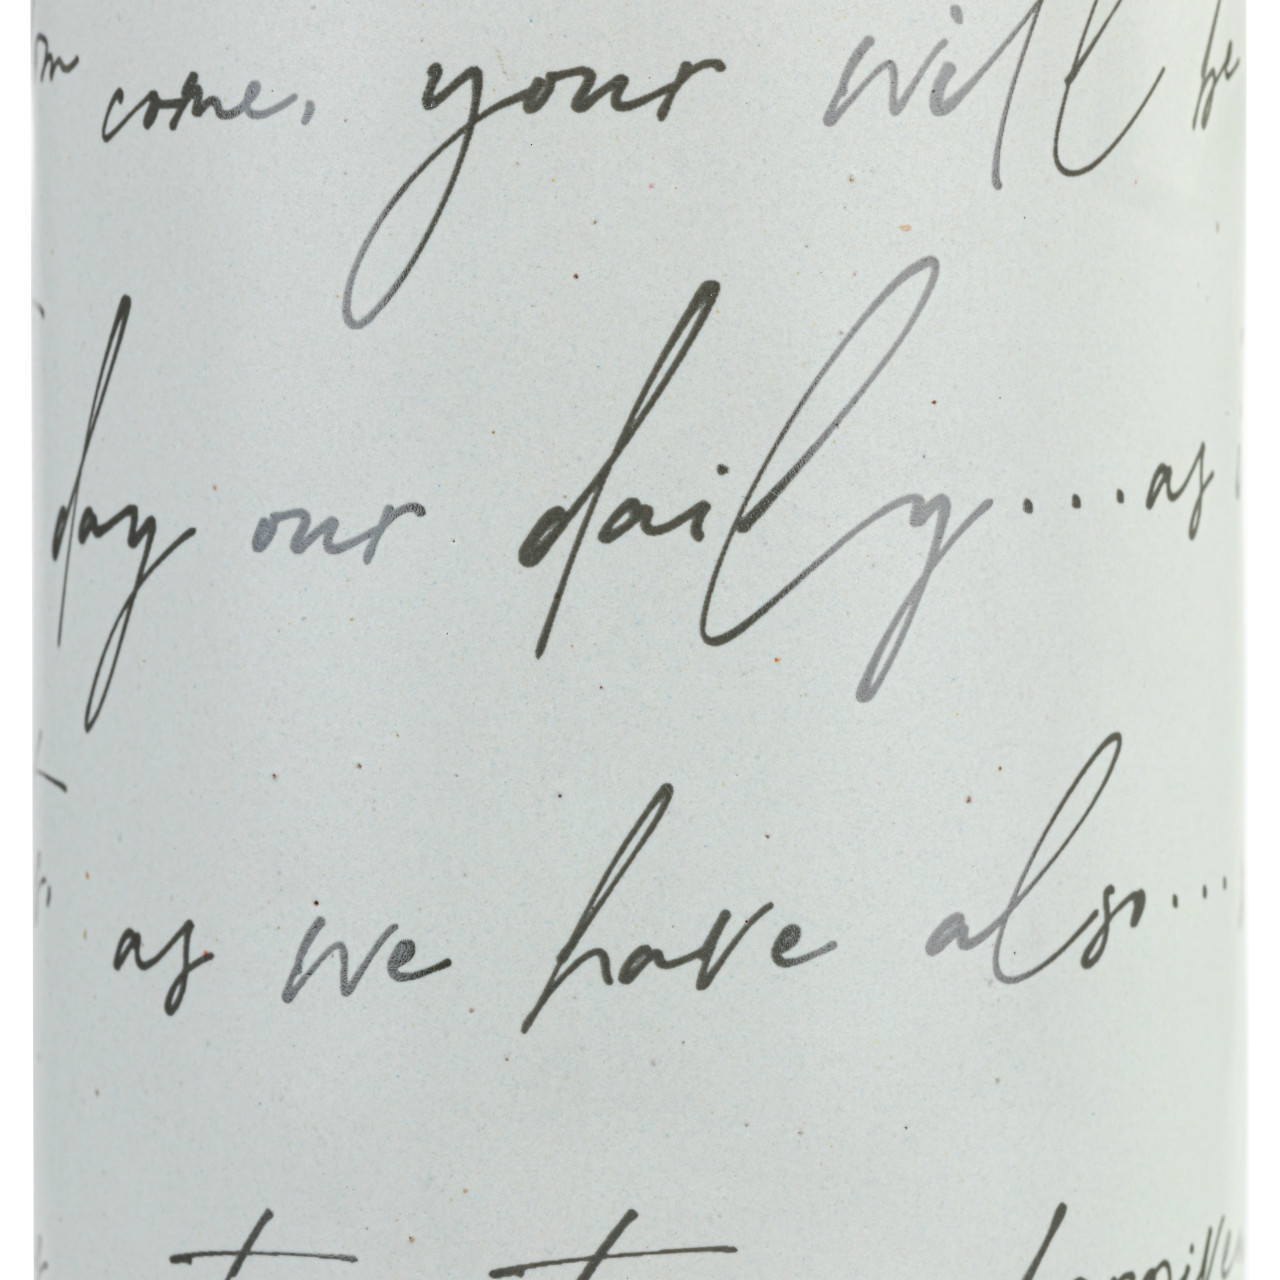 m come, your will be
day our daily...as
as we have also...